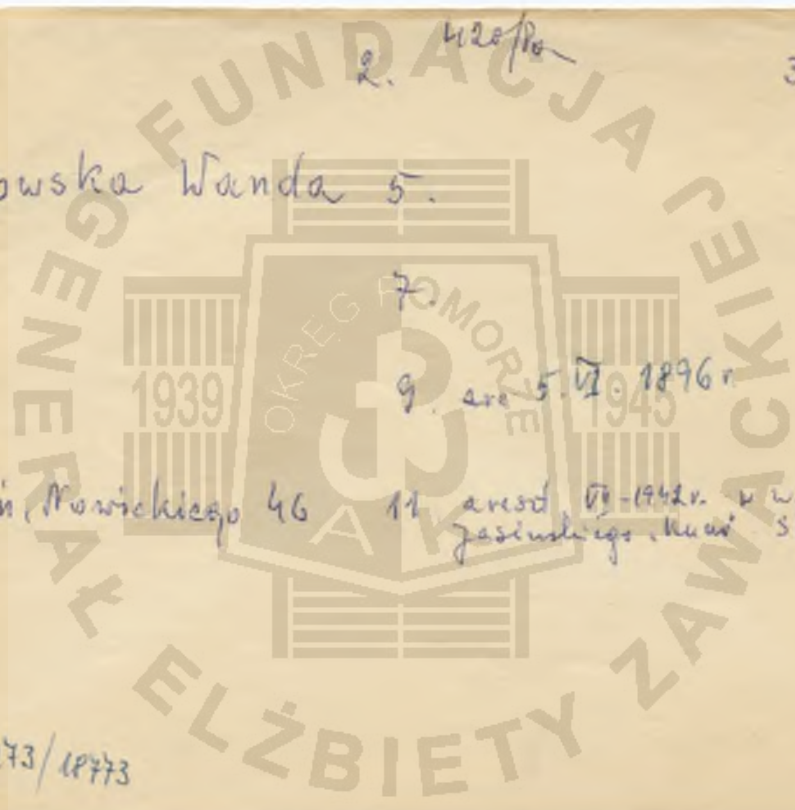 2. 420/Po 3
owska Wanda 5.
7.
9. 5.VI 1896 r
ń, Nowickiego 46 11 areszt. VII-1942r. w w
Jasińskiego S
73/18773
FUNDACJA GENERAŁ ELŻBIETY ZAWACKIEJ
OKRĘG POMORZE
1939 1945
AK